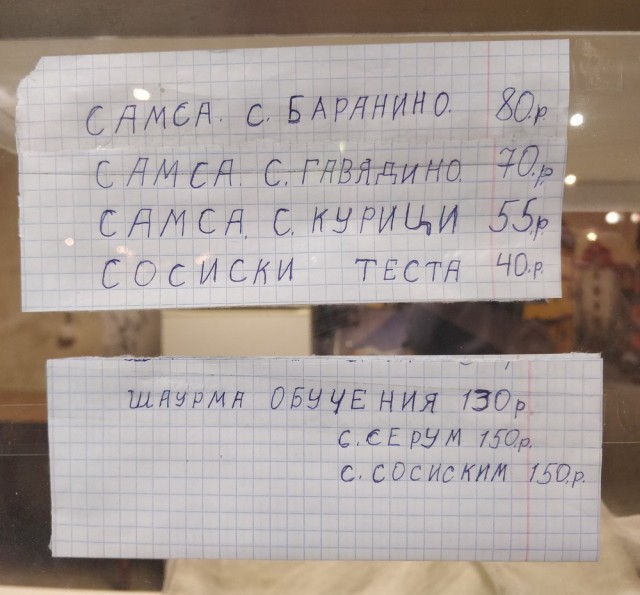 САМСА. С. БАРАНИНО. 80.р
САМСА. С. ГАВЯДИНО. 70.р
САМСА. С. КУРИЦИ 55.р
СОСИСКИ ТЕСТА 40.р.
ШАУРМА ОБУЧЕНИЯ 130р.
С. СЕРУМ 150.р.
С. СОСИСКИМ 150.р.